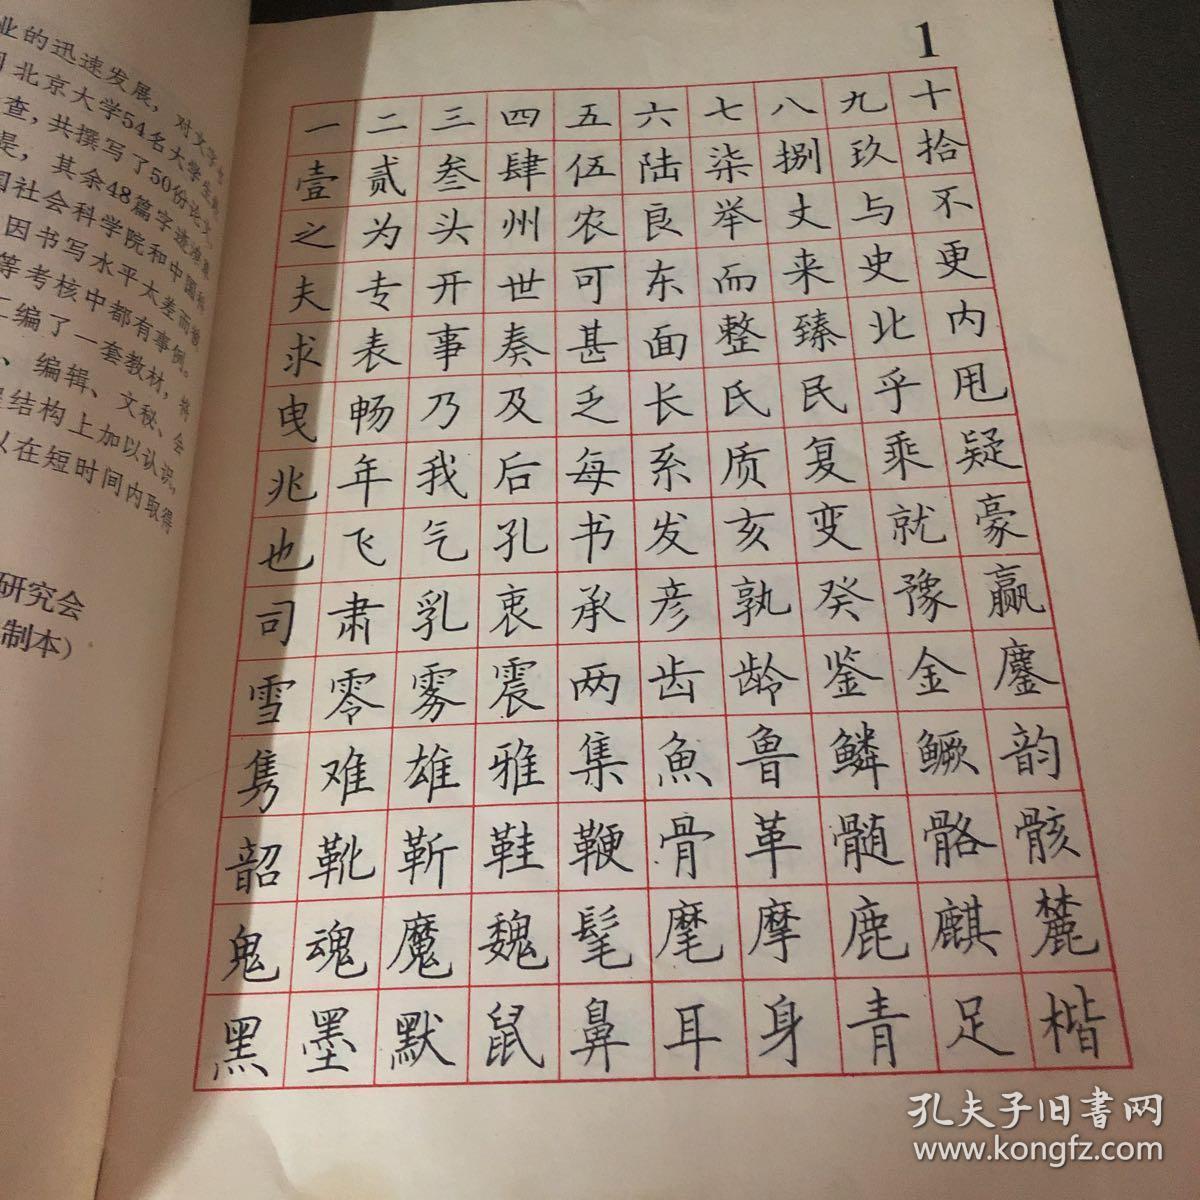 业的迅速发展，对文字
北京大学54名大学生
查，共撰写了50份论文，
是，其余48篇字迹
国社会科学院和中国科
因书写水平太差而
等考核中都有事例。
编了一套教材，
、编辑、文秘、会
结构上加以认识，
以在短时间内取得
研究会
制本）
1
一二三四五六七八九十
壹贰叁肆伍陆柒捌玖拾
之为头州农良举丈与不
夫专开世可东而来史更
求表事奏甚面整臻北内
曳畅乃及乏长氏民乎甩
兆年我后每系质复乘疑
也飞气孔书发亥变就豪
司肃乳衷承彦孰癸豫赢
雪零雾震两齿龄鉴金鏖
隽难雄雅集鱼鲁鳞鳜韵
韶靴靳鞋鞭骨革髓骼骸
鬼魂魔魏髦麾摩鹿麒麓
黑墨默鼠鼻耳身青足楷
孔夫子旧书网
www.kongfz.com